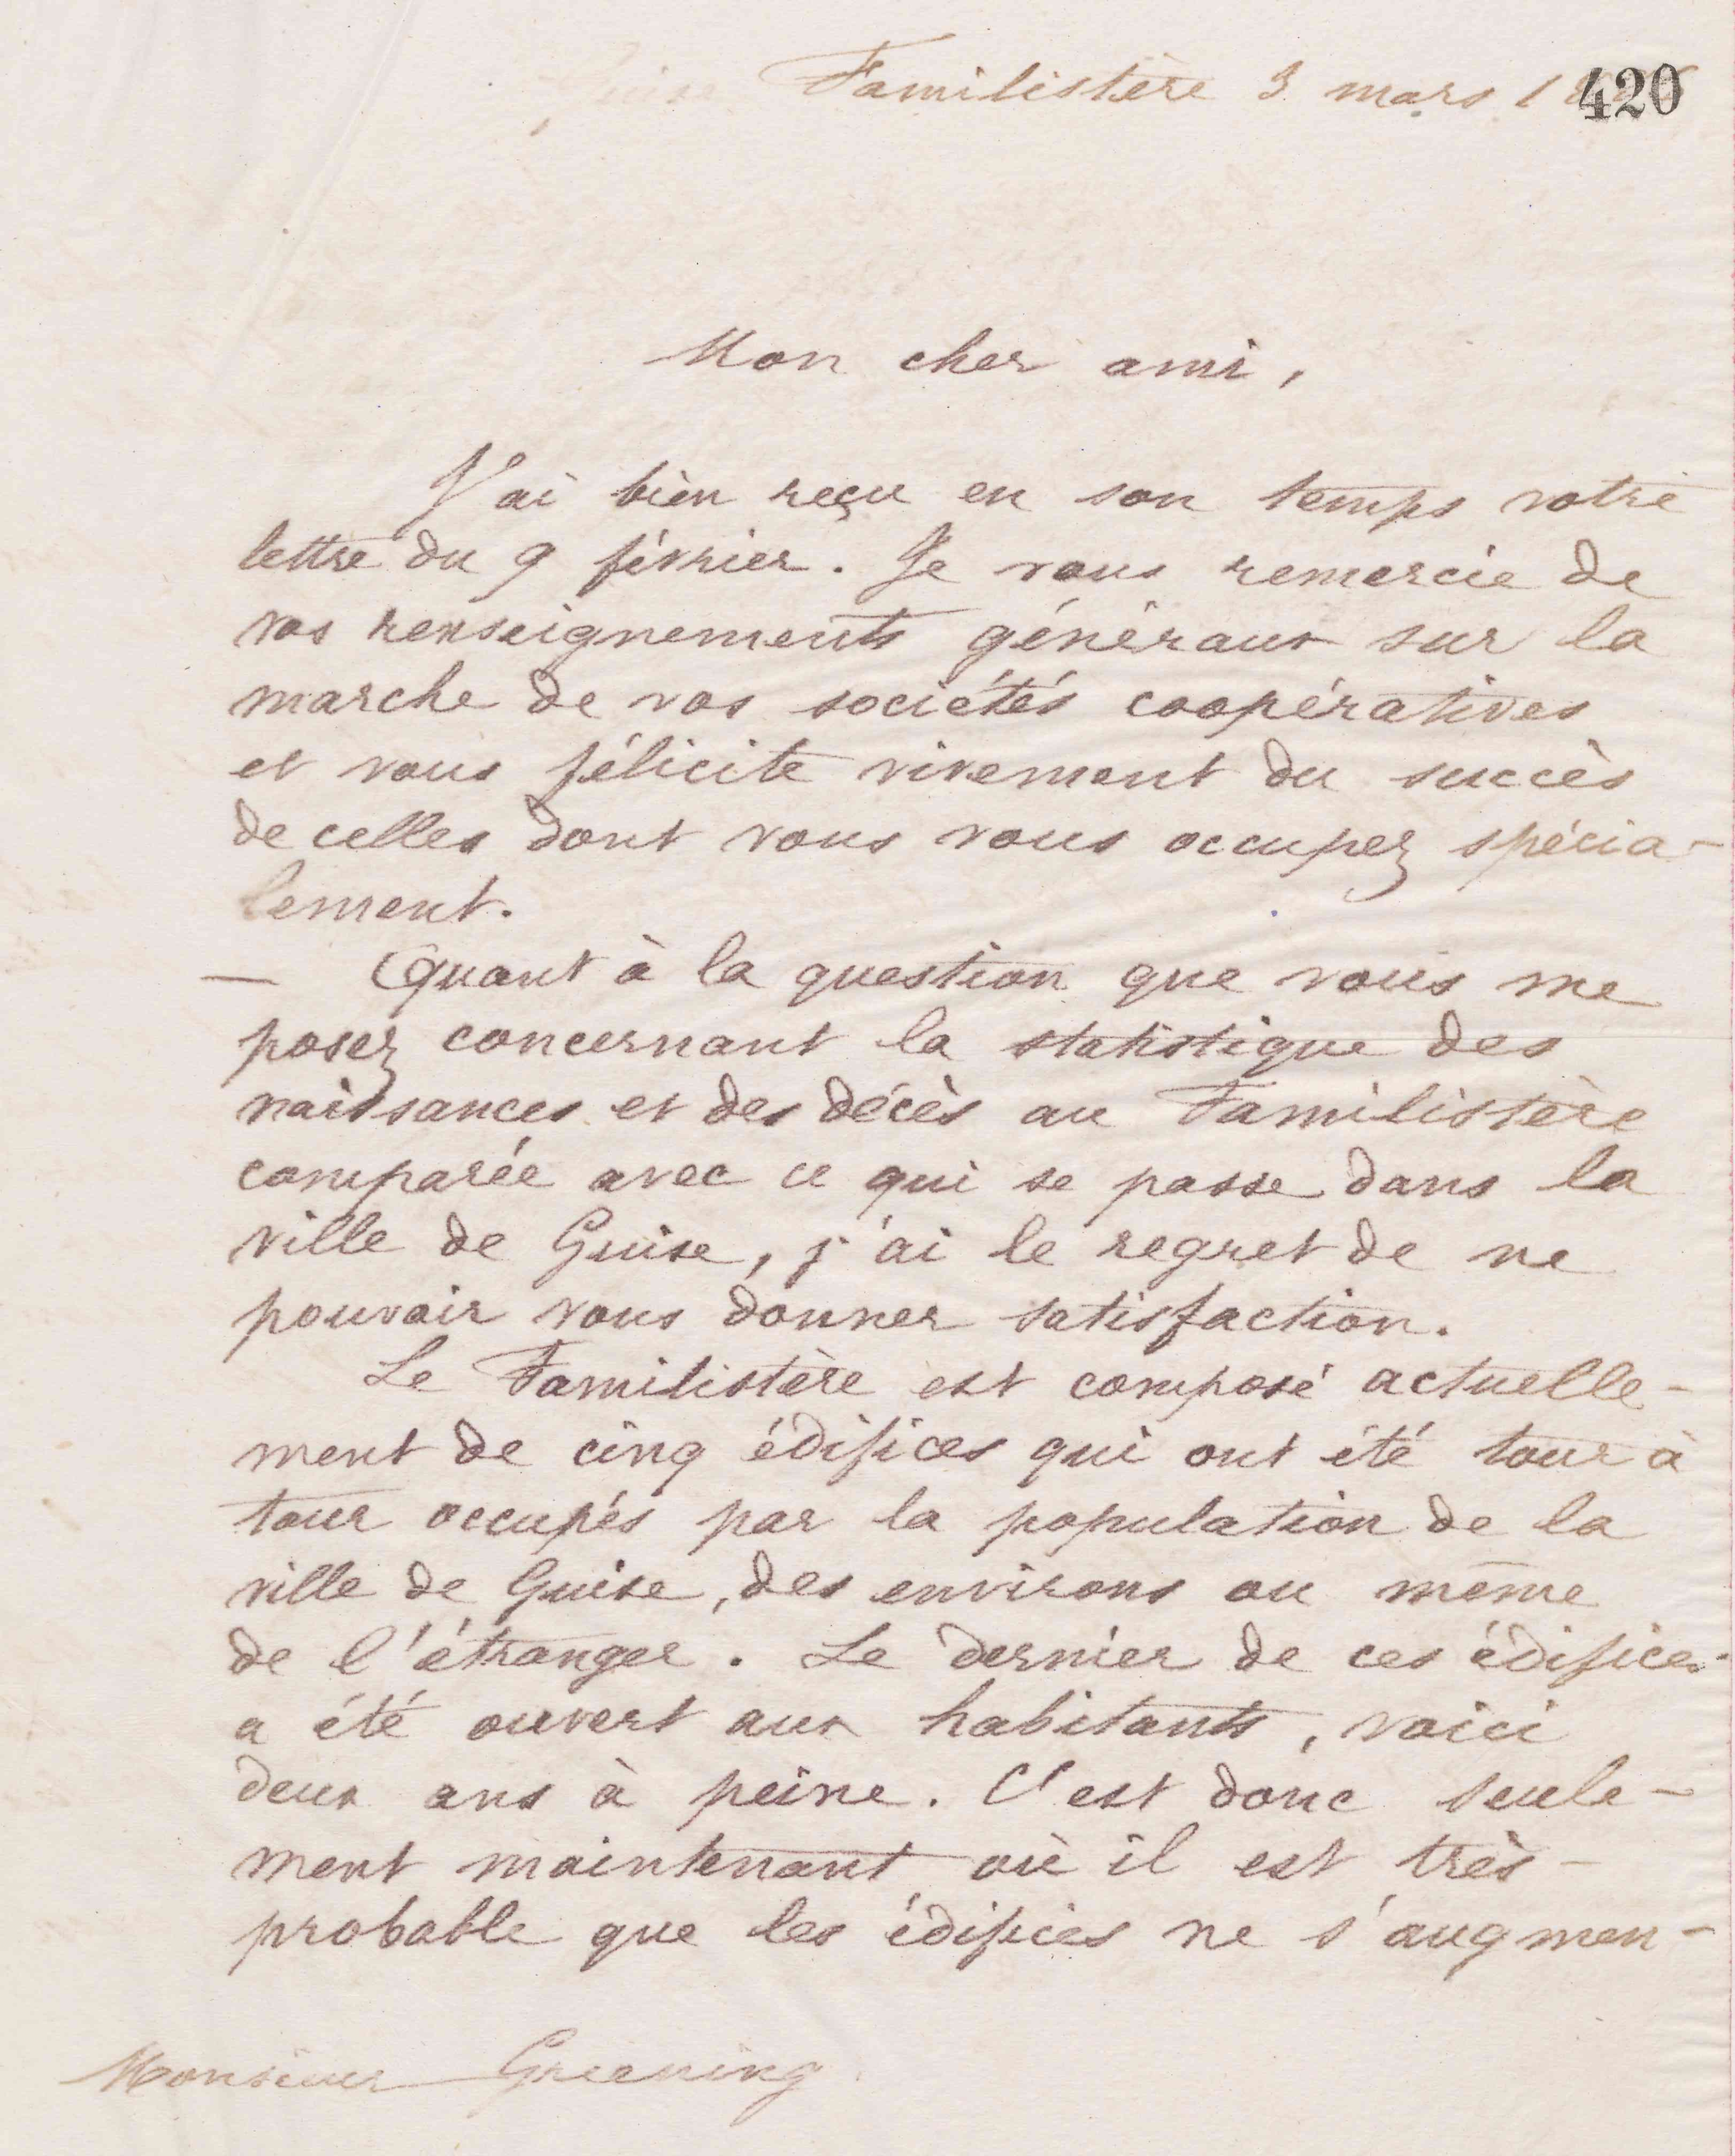 Guise Familistère 3 mars 1
420
Mon cher ami,
J'ai bien reçu en son temps votre
lettre du 9 février. Je vous remercie de
vos renseignements généraux sur la
marche de vos sociétés coopératives
et vous félicite vivement du succès
de celles dont vous vous occupez spécia-
lement.
— Quant à la question que vous me
posez concernant la statistique des
naissances et des décès au Familistère
comparée avec ce qui se passe dans la
ville de Guise, j'ai le regret de ne
pouvoir vous donner satisfaction.
Le Familistère est composé actuelle-
ment de cinq édifices qui ont été tour à
tour occupés par la population de la
ville de Guise, des environs ou même
de l'étranger. Le dernier de ces édifices
a été ouvert aux habitants, voici
deux ans à peine. C'est donc seule-
ment maintenant où il est très-
probable que les édifices ne s'augmen-
Monsieur Greening